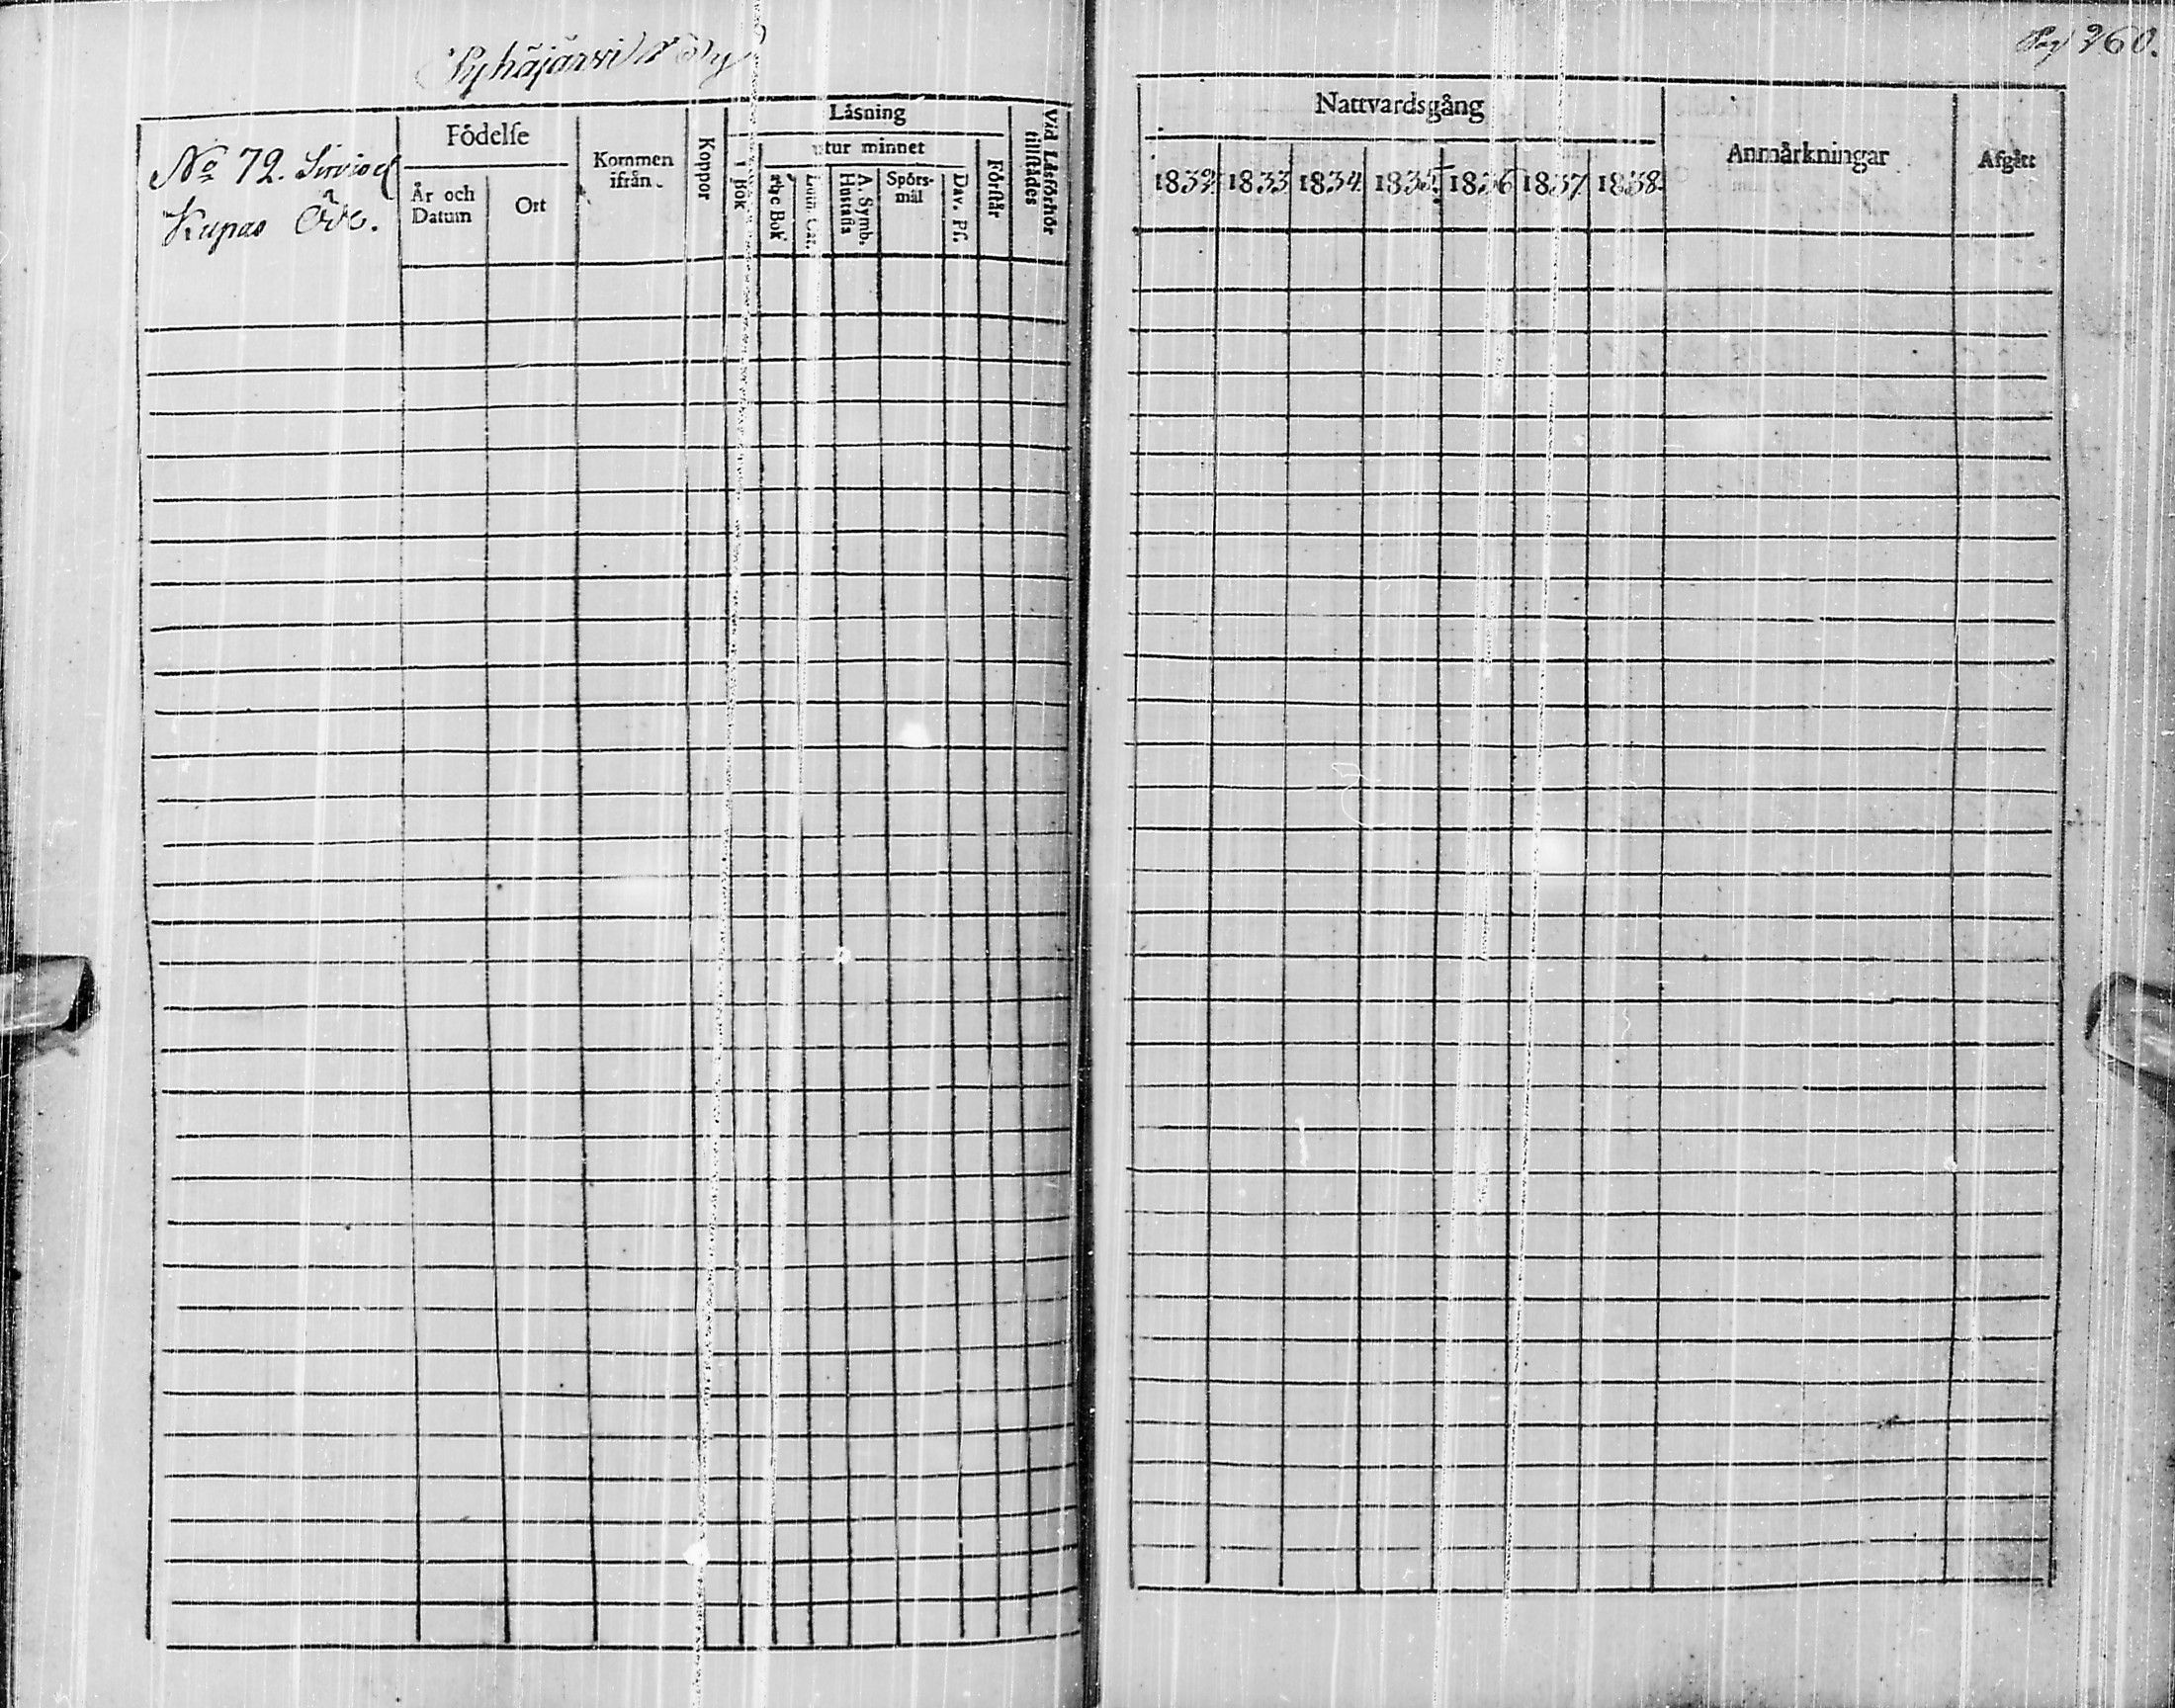 Pyhäjärvi By
Pag 260.
No 72. Sirviö el
Kupas Öde.
Födelse
År och
Datum
Ort
Kommen
ifrån.
Koppor
Läsning
i Bok
utur minnet
Abc Bok
Luth. Cat.
A. Symb.
Hustafla
Spörs-
mål
Dav. Ps.
Förstår
Vid Läsförhör
tillstädes
Nattvardsgång
1832 1833 1834 1835 1836 1837 1838
Anmärkningar
Afgått